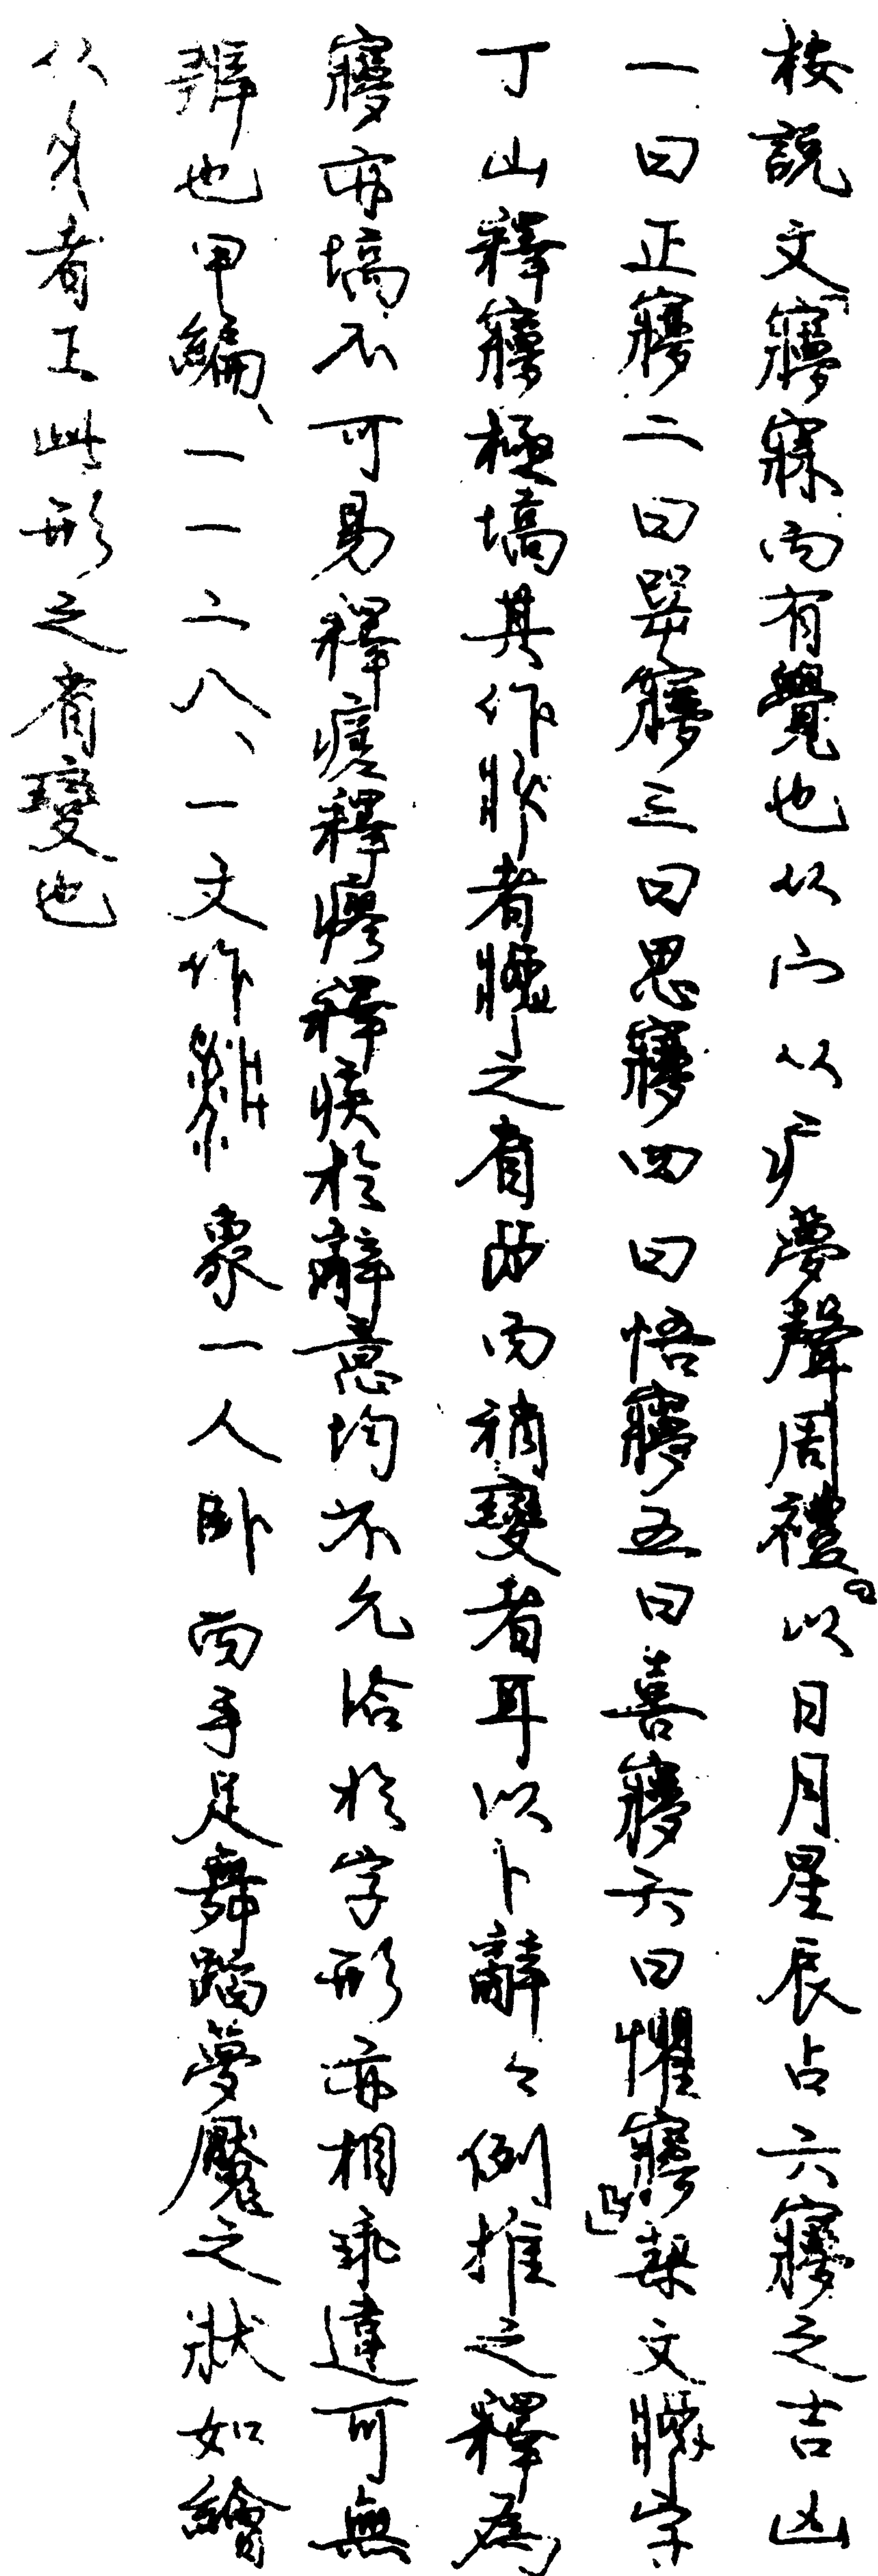 按説文「㝱寐而有覺也从宀从疒夢聲周禮『以日月星辰占六㝱之吉凶
一曰正㝱二曰噩㝱三曰思㝱四曰悟㝱五曰喜㝱六曰懼㝱』」栔文字
丁山釋㝱極塙其作者之省此而稍變者耳以卜辭々例推之釋為
㝱亦塙不可易釋瘧釋瘳釋疾於辭意均不允洽於字形亦相乖違可無
辨也甲編、一一二八、一文作象一人卧而手足舞蹈夢魘之狀如繪
从者正此形之省變也